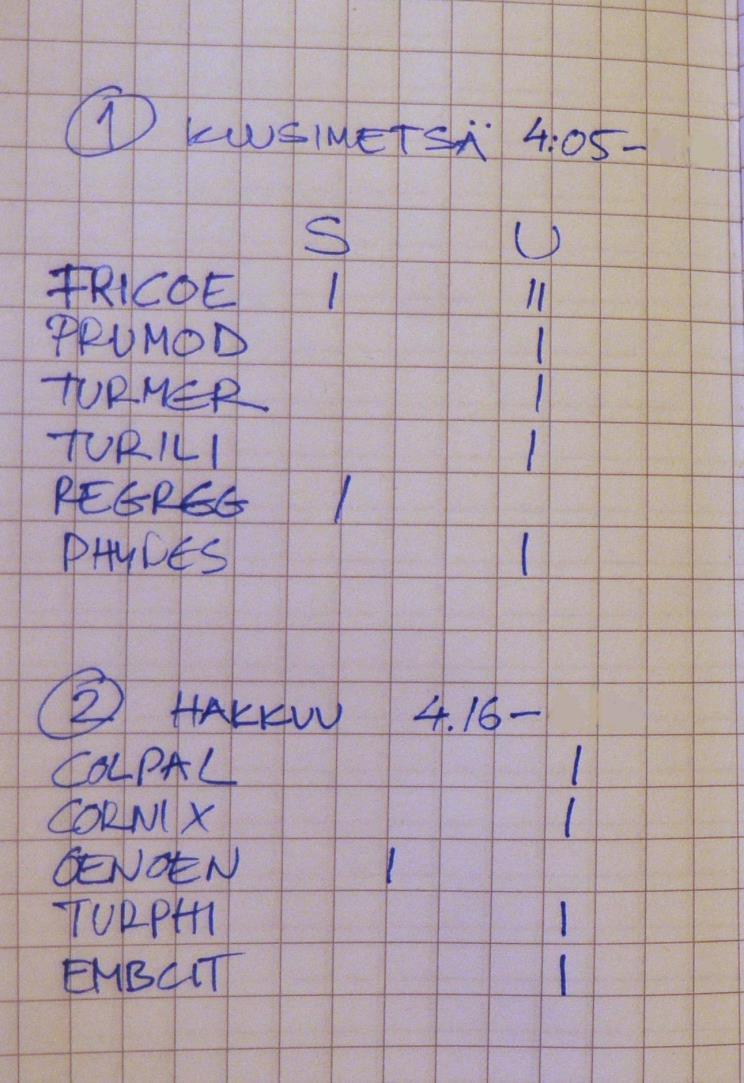 ① KUUSIMETSÄ 4:05-
S U
FRICOE I II
PRUMOD I
TURMER I
TURILI I
REGREG I
PHYDES I
② HAKKUU 4.16-
COLPAL I
CORNIX I
OENOEN I
TURPHI I
EMBCIT I